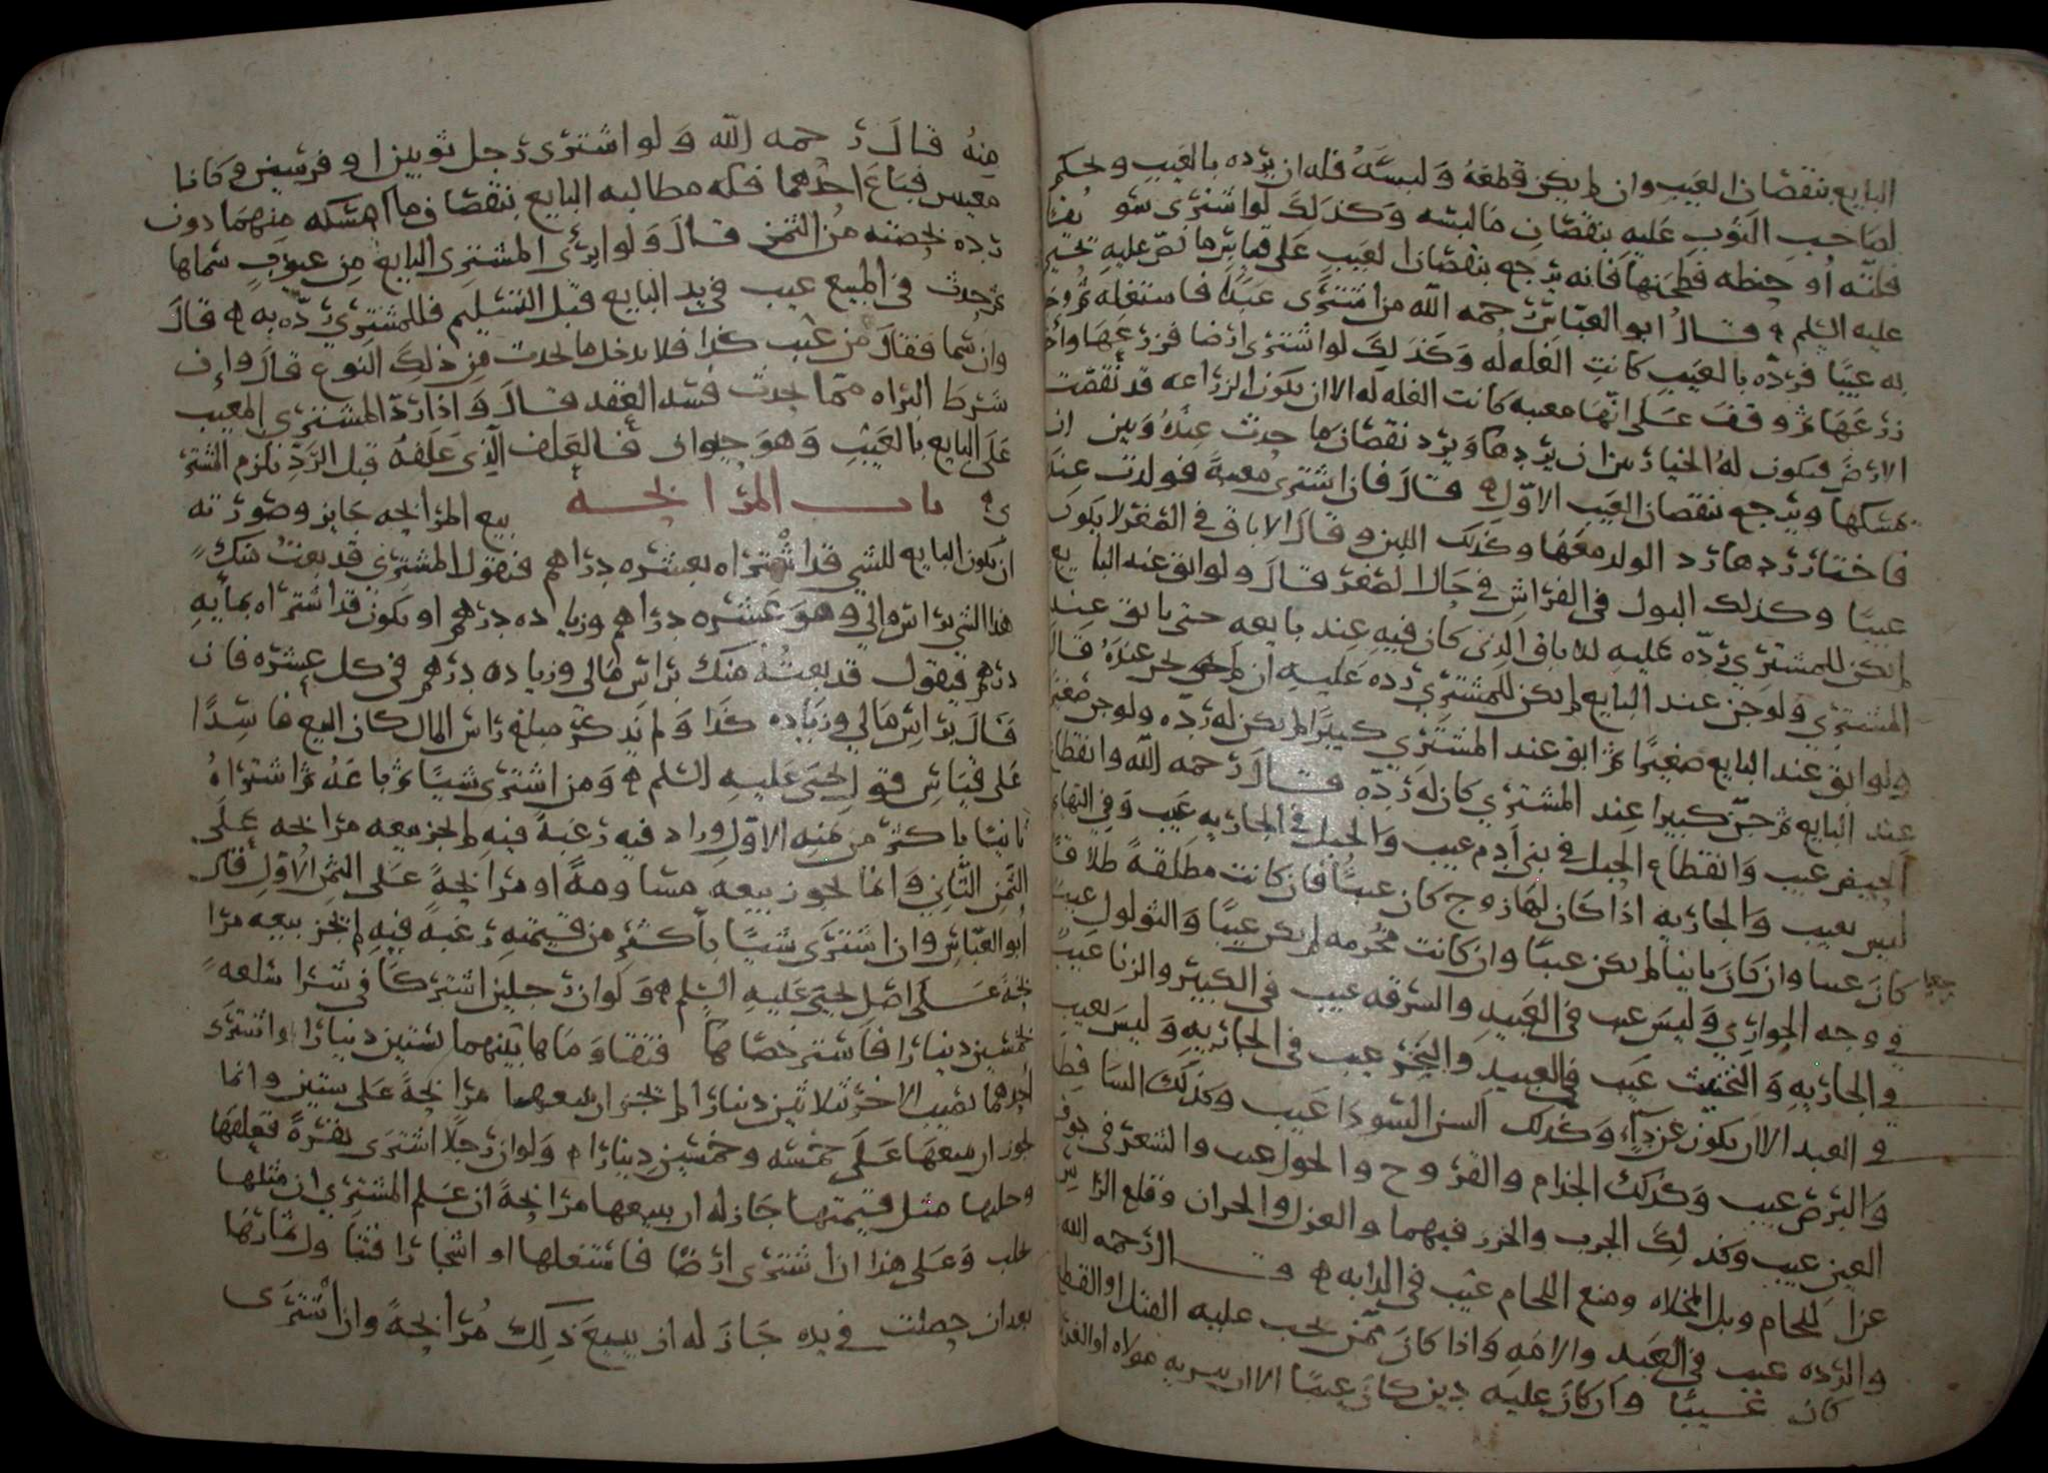 البايع بنقصان العيب وان لم يكن قطعه ولبسه فله ان يرده بالعيب ويحكم
لصاحب الثوب عليه بنقصان ما لبسه وكذلك لو اشترى
فلته او حنطه فطحنها فانه يرجع بنقصان العيب على قياس ما نص عليه يحيى
عليه السلم قال ابو العباس رحمه الله من اشترى عبدا فاستغله ثم وجد
به عيبا فرده بالعيب كانت الغله له وكذلك لو اشترى ارضا فزرعها واخذ
زرعها ثم وقف على انها معيبه كانت الغله له الا ان يكون الزراعه قد نقصت
الارض فيكون له الخيار بين ان يردها ويرد نقصان ما حدث عنده وبين ان
يمسكها ويرجع بنقصان العيب الاول قال فان اشترى معيبة فولدت عنده
فاختار ردها رد الولد معها وكذلك اللبن وقال الاباق في الصغر لا يكون
عيبا وكذلك البول في الفراش في حال الصغر قال ولو ابق عند البايع
لم يكن للمشتري رده عليه للاباق الذي كان فيه عند بايعه حتى يابق عند
المشتري ولو جن عند البايع لم يكن للمشتري رده عليه ان لم يجن عنده قال
ولو ابق عند البايع صغيرا ثم ابق عند المشتري كبيرا لم يكن له رده ولو جن صغيرا
عند البايع ثم جن كبيرا عند المشتري كان له رده قال رحمه الله وانقطاع
الحيض عيب وانقطاع الحبل في بني ادم عيب والحبل في الجاريه عيب وفي البهايم
ليس بعيب والجاريه اذا كان لها زوج كان عيبا فان كانت مطلقة طلاقا
رجعيا كان عيبا وان كان باينا لم يكن عيبا وان كانت محرمه لم يكن عيبا والثولول عيب
في وجه الجواري وليس عيب في العبيد والسرقه عيب في الكبير والزنا عيب
في الجاريه والتخنيث عيب في العبيد والبخر عيب في الجاريه وليس بعيب
في العبد الا ان يكون عن داء وكذلك السن السودا عيب وكذلك الساقطه
والبرص عيب وكذلك الجذام والقروح والحول عيب والشعر في جوف
العين عيب وكذلك الجرب والخرز فيهما والعزل والحران وقلع الراس
عن اللجام وبل المخلاه ومنع اللجام عيب في الدابه قال رحمه الله
والرده عيب في العبد والامه واذا كان ممن يجب عليه القتل او القطع
كان عيبا وان كان عليه دين كان عيبا الا ان يبريه مولاه او الغرما
منه قال رحمه الله ولو اشترى رجل ثوبين او فرسين وكانا
معيبين فباع احدهما فله مطالبه البايع بنقصان ما امسكه منهما دون
رده بحصته من الثمن قال ولو ابرى المشتري البايع من عيوب سماها
ثم حدث في المبيع عيب في يد البايع قبل التسليم فللمشتري رده به قال
وان سما فقال من عيب كذا فلا يدخل ما يحدث من ذلك النوع قال وان
شرط البراه مما يحدث فسد العقد قال واذا رد المشتري المعيب
على البايع بالعيب وهو حيوان فالعلف الذي علفه قبل الرد يلزم المشتر
ي باب المرابحه بيع المرابحه جايز وصورته
ان يكون البايع للشي قد اشتراه بعشره دراهم فيقول للمشتري قد بعت منك
هذا الشي براس مالي وهو عشره دراهم وزياده درهم او يكون قد اشتراه بمايه
درهم فيقول قد بعته منك براس مالي وزياده درهم في كل عشره فان
قال براس مالي وزياده كذا ولم يذكر مبلغ راس المال كان البيع فاسدا
على قياس قول يحيى عليه السلم ومن اشترى شيا ثم باعه ثم اشتراه
ثانيا باكثر من ثمنه الاول وزاد فيه رغبة فيه لم يجز بيعه مرابحه على
الثمن الثاني وانما يجوز بيعه مساومة او مرابحة على الثمن الاول قال
ابو العباس وان اشترى شيا باكثر من قيمته رغبة فيه لم يجز بيعه مرا
بحة على اصل يحيى عليه السلم ولو ان رجلين اشتركا في شرا سلعة
بخمسين دينارا فاسترخصاها فتقاوماها بينهما بستين دينارا واشترى
احدهما نصيب الاخر بثلاثين دينارا لم يجز ان يبيعها مرابحة على ستين وانما
يجوز ان يبيعها على خمسه وخمسين دينارا ولو ان رجلا اشترى بقرة فعلفها
وحلبها مثل قيمتها جاز له ان يبيعها مرابحة ان علم المشتري ان مثلها
يحلب وعلى هذا ان اشترى ارضا فاستغلها او اشجارا فتناول ثمارها
بعد ان حصلت في يده جاز له ان يبيع ذلك مرابحة وان اشترى